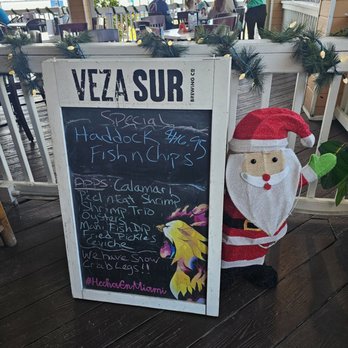 VEZA SUR
BREWING CO
Special
Haddock $16.95
Fish n Chips
Apps: Calamari
Peel n Eat Shrimp
Shrimp Trio
Oysters
Mahi Fish Dip
Fried Pickles
Ceviche
We have Snow
Crab Legs!!
#HechoEnMiami